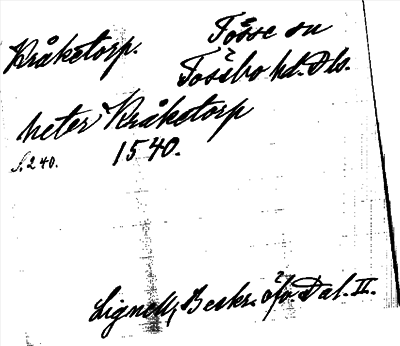 Kråketorp.
Tösse sn
Tössbo hd. Dls.
heter Kråketorp
S. 240.
1540.
Lignell, Beskr. öfv. Dal. II.